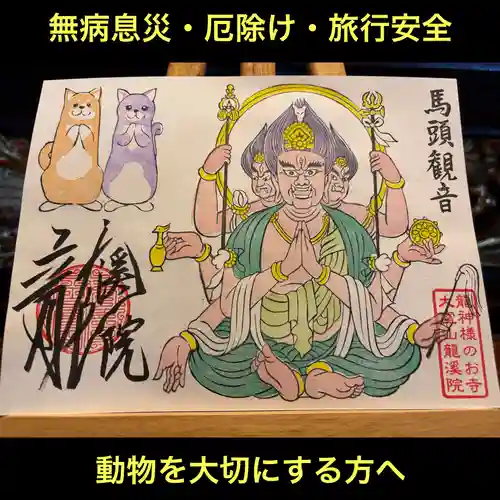 無病息災・厄除け・旅行安全
馬頭観音
龍溪院
龍神様のお寺
龍溪院
動物を大切にする方へ